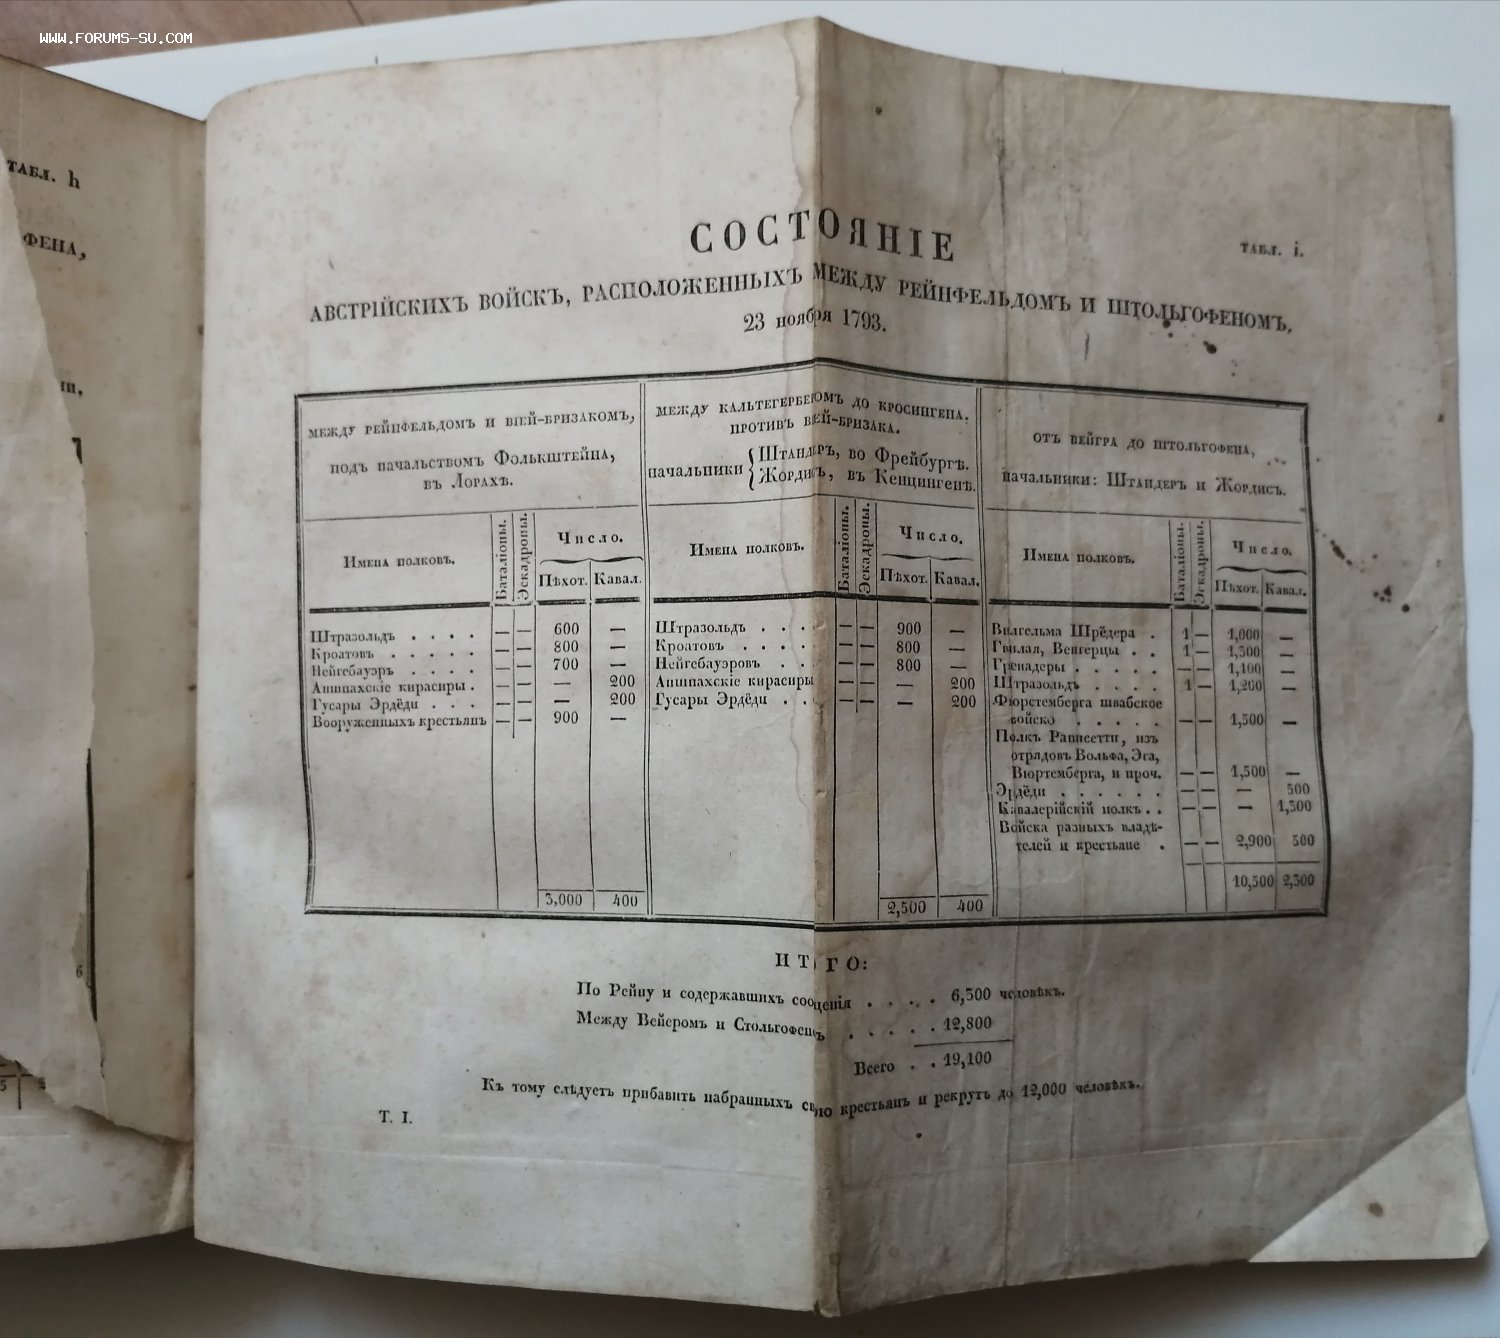 WWW.FORUMS-SU.COM
ТАБЛ. h
ФЕНА,
СОСТОЯНІЕ
ТАБЛ. i.
АВСТРІЙСКИХЪ ВОЙСКЪ, РАСПОЛОЖЕННЫХЪ МЕЖДУ РЕЙНФЕЛЬДОМЪ И ШТОЛЬГОФЕНОМЪ,
23 ноября 1793.
МЕЖДУ РЕЙНФЕЛЬДОМЪ И ВІЕЙ-БРИЗАКОМЪ,
ПОДЪ НАЧАЛЬСТВОМЪ ФОЛЬКШТЕЙНА,
ВЪ ЛОРАХѢ.
Имена полковъ. Баталіоны. Эскадроны. Число. Пѣхот. Кавал.
Штразольдъ . . . . — — 600 —
Кроатовъ . . . . . — — 800 —
Нейгебауэръ . . . . — — 700 —
Аншпахскіе кирасиры . — — — 200
Гусары Эрдёди . . . — — — 200
Вооруженныхъ крестьянъ — — 900 —
3,000 400
МЕЖДУ КАЛЬТЕГЕРБЕРОМЪ ДО КРОСИНГЕНА,
ПРОТИВЪ ВІЕЙ-БРИЗАКА.
НАЧАЛЬНИКИ { Штандеръ, во Фрейбургѣ.
Жордисъ, въ Кенцингенѣ.
Имена полковъ. Баталіоны. Эскадроны. Число. Пѣхот. Кавал.
Штразольдъ . . . — — 900 —
Кроатовъ . . . . — — 800 —
Нейгебауэровъ . . — — 800 —
Аншпахскіе кирасиры — — — 200
Гусары Эрдёди . . — — — 200
2,500 400
ОТЪ ВЕЙГРА ДО ШТОЛЬГОФЕНА,
НАЧАЛЬНИКИ: ШТАНДЕРЪ И ЖОРДИСЪ.
Имена полковъ. Баталіоны. Эскадроны. Число. Пѣхот. Кавал.
Вилгельма Шрёдера . 1 — 1,000 —
Гиулая, Венгерцы . . 1 — 1,300 —
Гренадеры . . . . . — — 1,100 —
Штразольдъ . . . . 1 — 1,200 —
Фюрстемберга швабское
войско . . . . . — — 1,500 —
Полкъ Раписетти, изъ
отрядовъ Вольфа, Эга,
Вюртемберга, и проч. — — 1,500 —
Эрдёди . . . . . . — — — 500
Кавалерійскій полкъ . . — — — 1,300
Войска разныхъ владѣ-
телей и крестьяне . — — 2,900 500
10,500 2,300
ИТОГО:
По Рейну и содержавшихъ сообщенія . . . . 6,300 человѣкъ.
Между Вейеромъ и Стольгофенъ . . . . . 12,800
Всего . . 19,100
Къ тому слѣдуетъ прибавить набранныхъ силою крестьянъ и рекрутъ до 12,000 человѣкъ.
Т. I.